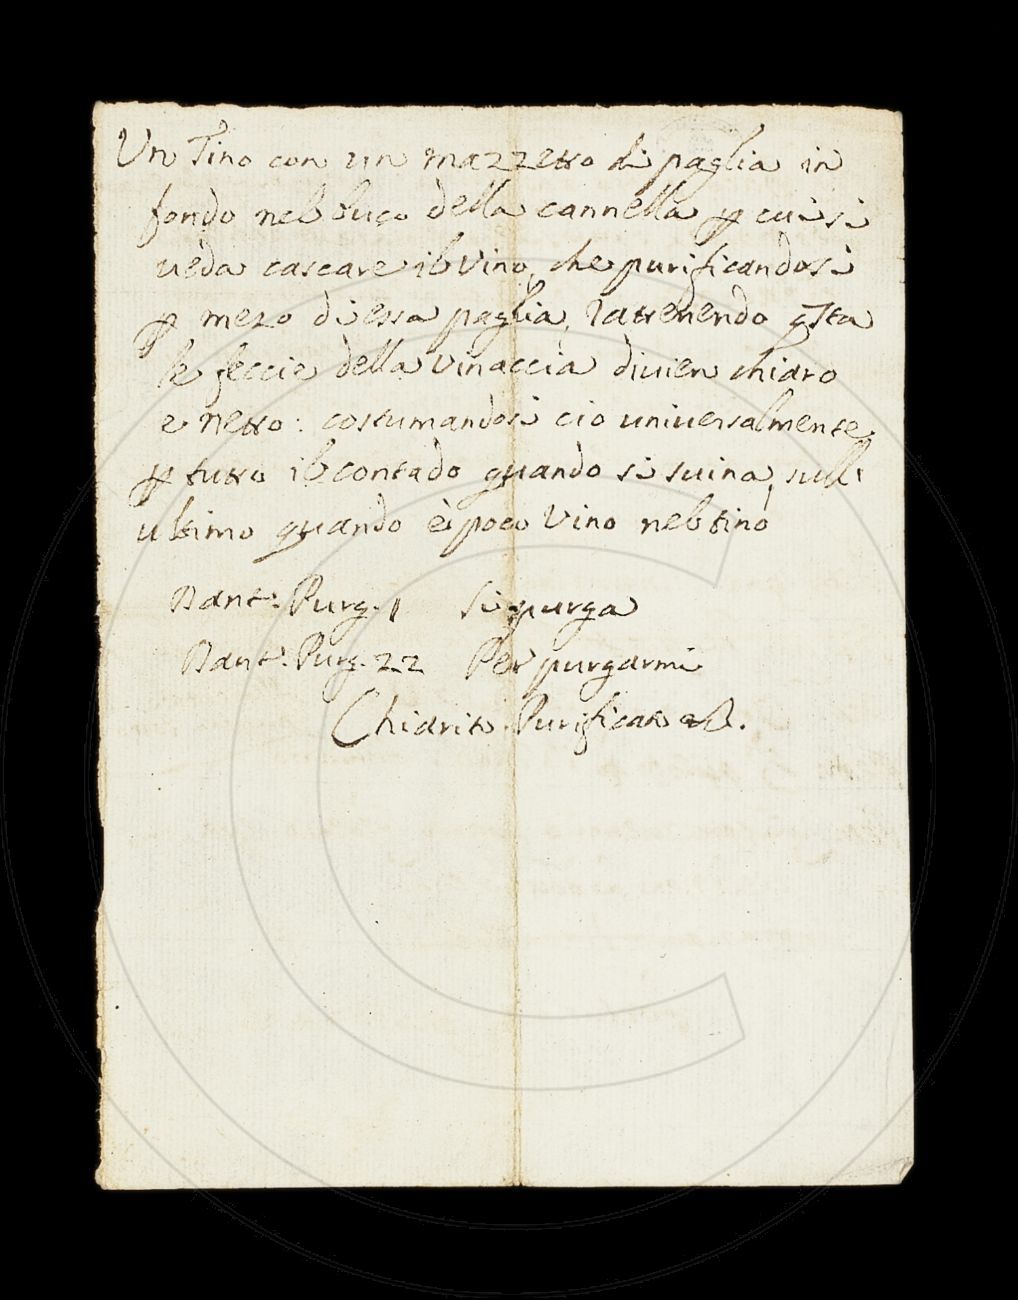 Un Tino con un mazzetto di paglia in
fondo nel buco della cannella ꝑ cui si
ueda cascare il Vino, che purificandosi
ꝑ mezo di essa paglia, ratenendo qsta
le feccie della Vinaccia diuien chiaro
e netto: costumandosi cio uniuersalmente
ꝑ tutto il contado quando si suina, sull'
ultimo quando è poco Vino nel tino
Dant: Purg. 1 Si purga
Dant: Purg. 22 Per purgarmi
Chiarito Purificato